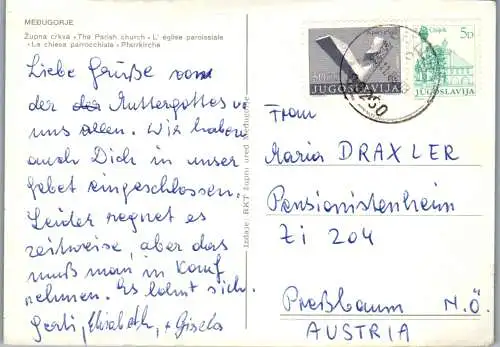 MEĐUGORJE
Župna crkva • The Parish church • L' église paroissiale
• La chiesa parrocchiale • Pfarrkirche
Liebe Grüße von
der Muttergottes v.
uns allen. Wir haben
auch Dich in unser
Gebet eingeschlossen.
Leider regnet es
zeitweise, aber das
muß man in Kauf
nehmen. Es lohnt sich.
Gerti, Elisabeth, + Gisela
Izdaje: RKT župni ured Međugorje
JUGOSLAVIJA
Osijek
5D
JUGOSLAVIJA
Frau
Maria DRAXLER
Pensionistenheim
Zi 204
Preßbaum N.Ö.
AUSTRIA